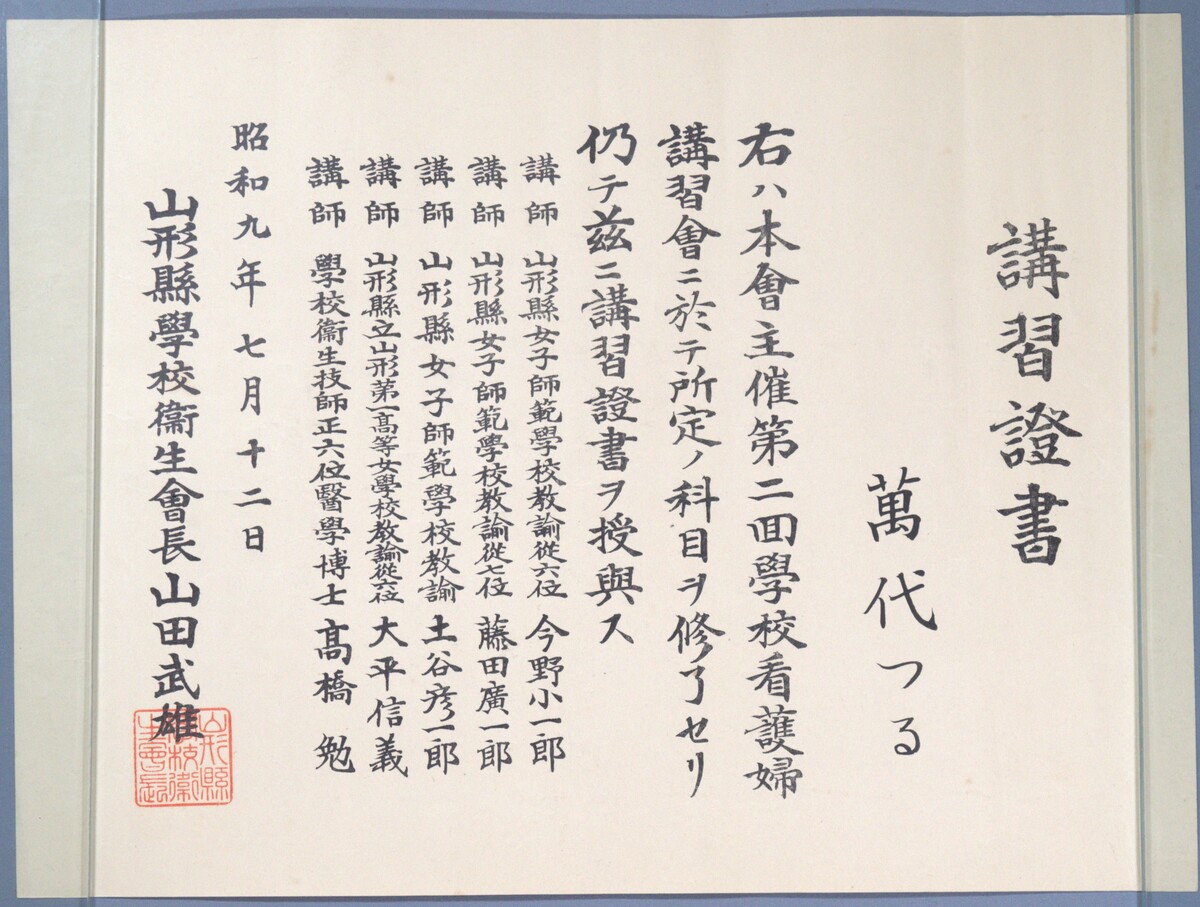 講習證書
萬代つる
右ハ本會主催第二回學校看護婦
講習會ニ於テ所定ノ科目ヲ修了セリ
仍テ茲ニ講習證書ヲ授與ス
講師 山形縣女子師範學校教諭從六位 今野小一郎
講師 山形縣女子師範學校教諭從七位 藤田廣一郎
講師 山形縣女子師範學校教諭 土谷彦一郎
講師 山形縣立山形第一高等女學校教諭從六位 大平信義
講師 學校衞生技師正六位醫學博士 髙橋勉
昭和九年七月十二日
山形縣學校衞生會長山田武雄
山形縣學校衞生會長